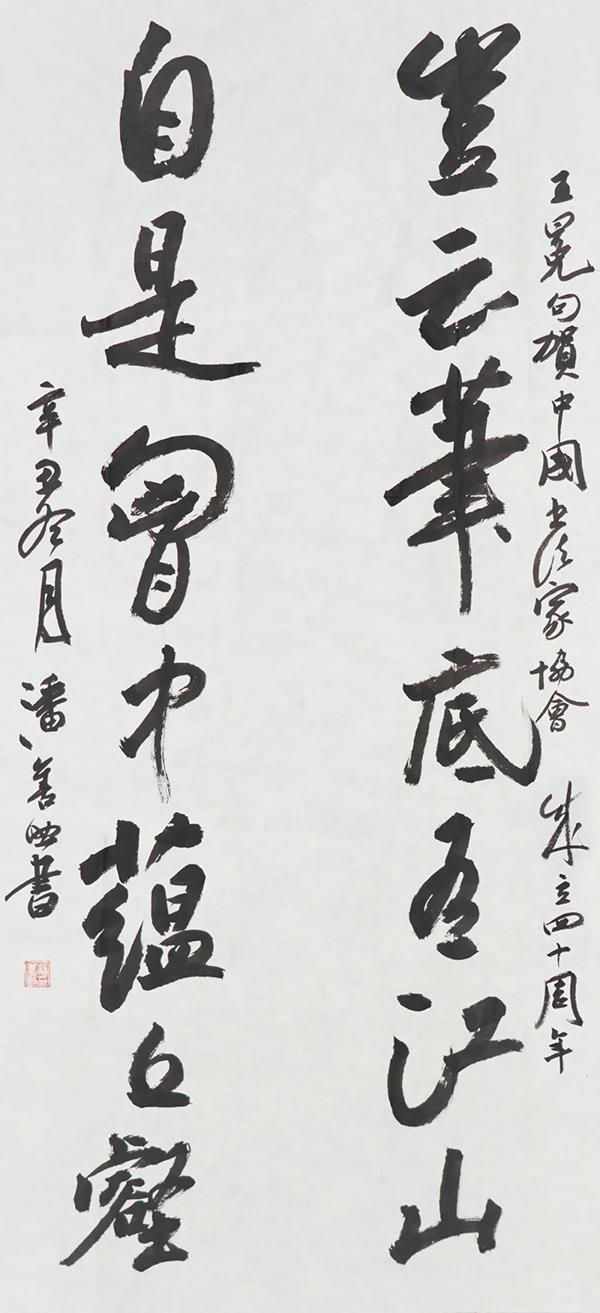 王冕句賀中國书法家協會成立四十周年
豈云筆底有江山
自是胷中藴丘壑
辛丑冬月潘善助書